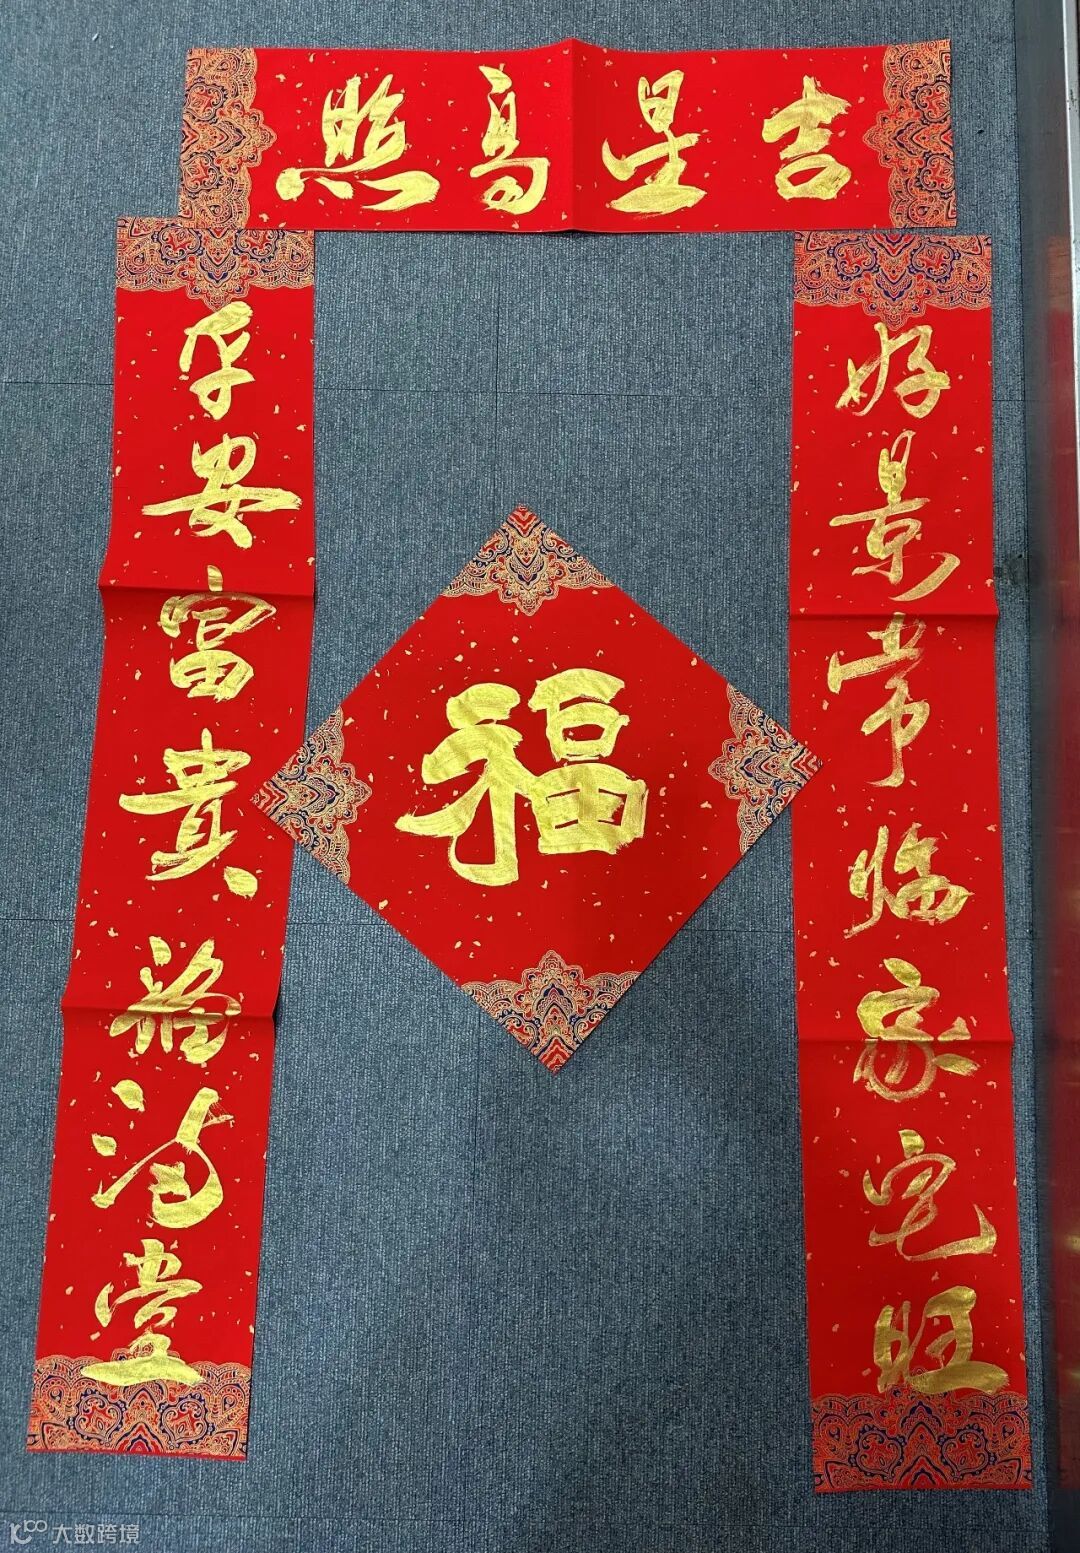 吉星高照
好景常临家宅旺
平安富貴福满堂
福
大数跨境